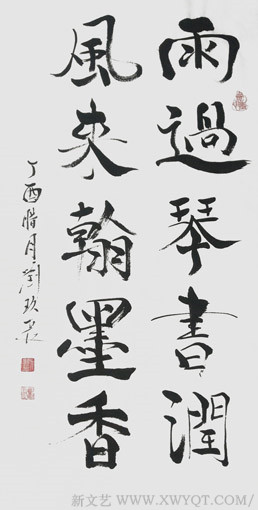 雨過琴書潤
風来翰墨香
丁酉腊月劉玖
新文艺 WWW.XWYQT.COM/